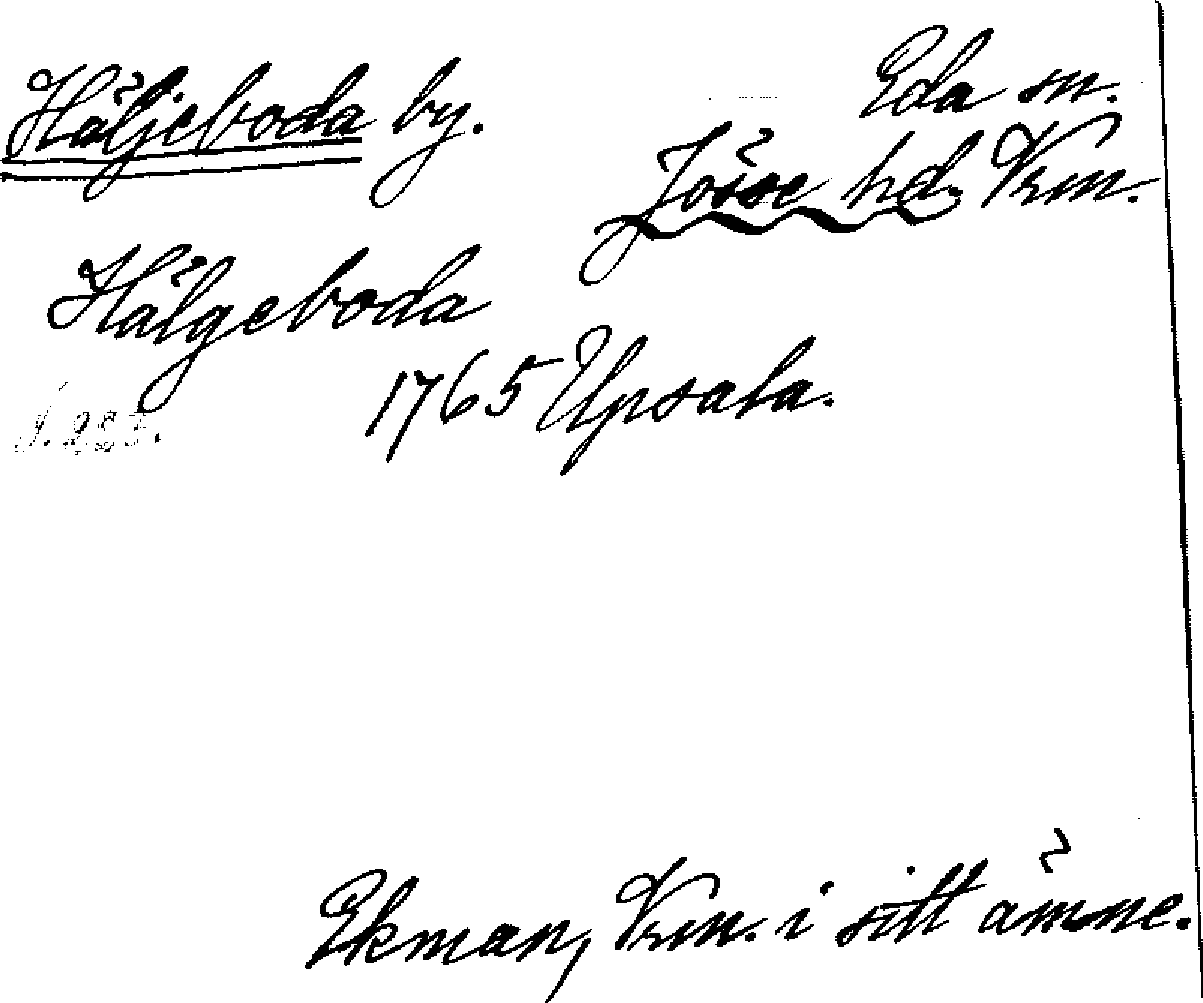 Häljeboda by.
Eda sn.
Jösse hd. Vrm.
Hälgeboda
1765 Upsala.
Ekman, Vrm. i sitt ämne.